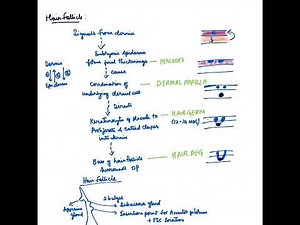 Hair Follicle:
Signals from dermis
Embryonic epidermis
forms focal thickenings → PLACODES
Dermis
Epidermis
Cause
Condensation of → DERMAL PAPILLA
underlying dermal cell
Directs
Keratinocytes of Placode to → HAIR GERM
Proliferate & extend deeper
into dermis
Base of hair follicle → HAIR PEG
surrounds DP
Hair Follicle
3 bulges
Apocrine gland
Sebaceous gland
Insertion point for Arrector pilorum
+ FSC location